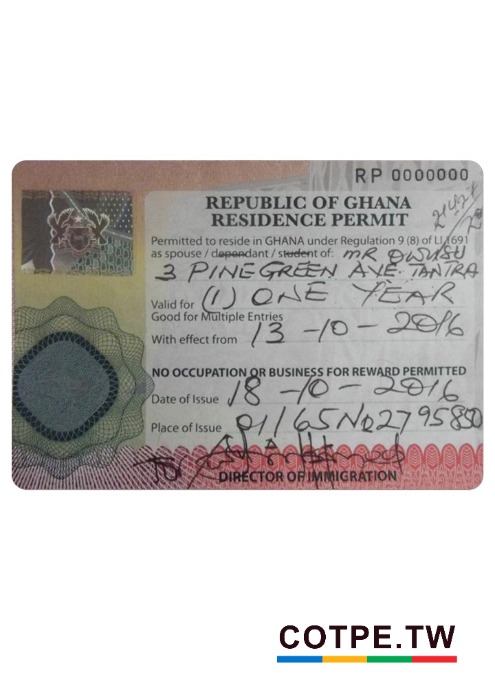 RP 0000000
REPUBLIC OF GHANA
RESIDENCE PERMIT
Permitted to reside in GHANA under Regulation 9 (8) of LI 1691
as spouse / dependant / student of: MR OWUSU
3 PINEGREEN AVE. TANTRA
Valid for (1) ONE YEAR
Good for Multiple Entries
With effect from 13-10-2016
NO OCCUPATION OR BUSINESS FOR REWARD PERMITTED
Date of Issue 18-10-2016
Place of Issue
DIRECTOR OF IMMIGRATION
COTPE.TW